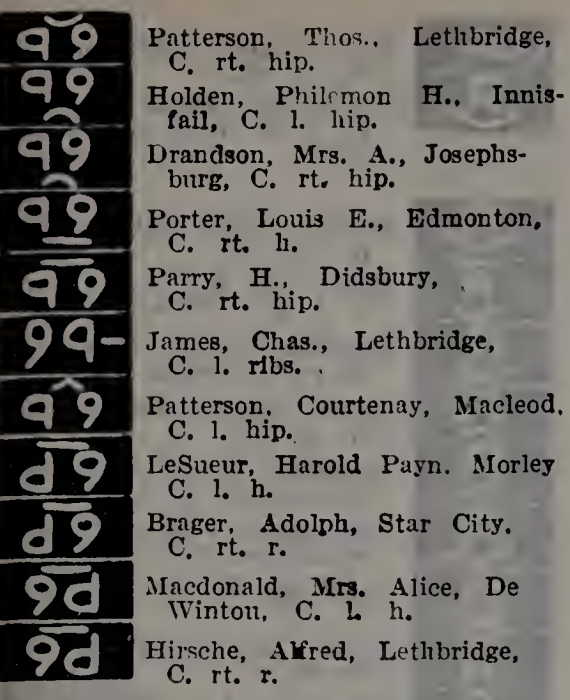 q9 Patterson, Thos., Lethbridge,
C. rt. hip.
q9 Holden, Philemon H., Innis-
fail, C. l. hip.
q9 Drandson, Mrs. A., Josephs-
burg, C. rt. hip.
q9 Porter, Louis E., Edmonton,
C. rt. h.
q9 Parry, H., Didsbury,
C. rt. hip.
9q- James, Chas., Lethbridge,
C. l. ribs.
q9 Patterson, Courtenay, Macleod,
C. l. hip.
d9 LeSueur, Harold Payn. Morley
C. l. h.
d9 Brager, Adolph, Star City.
C. rt. r.
9d Macdonald, Mrs. Alice, De
Winton, C. l. h.
9d Hirsche, Alfred, Lethbridge,
C. rt. r.